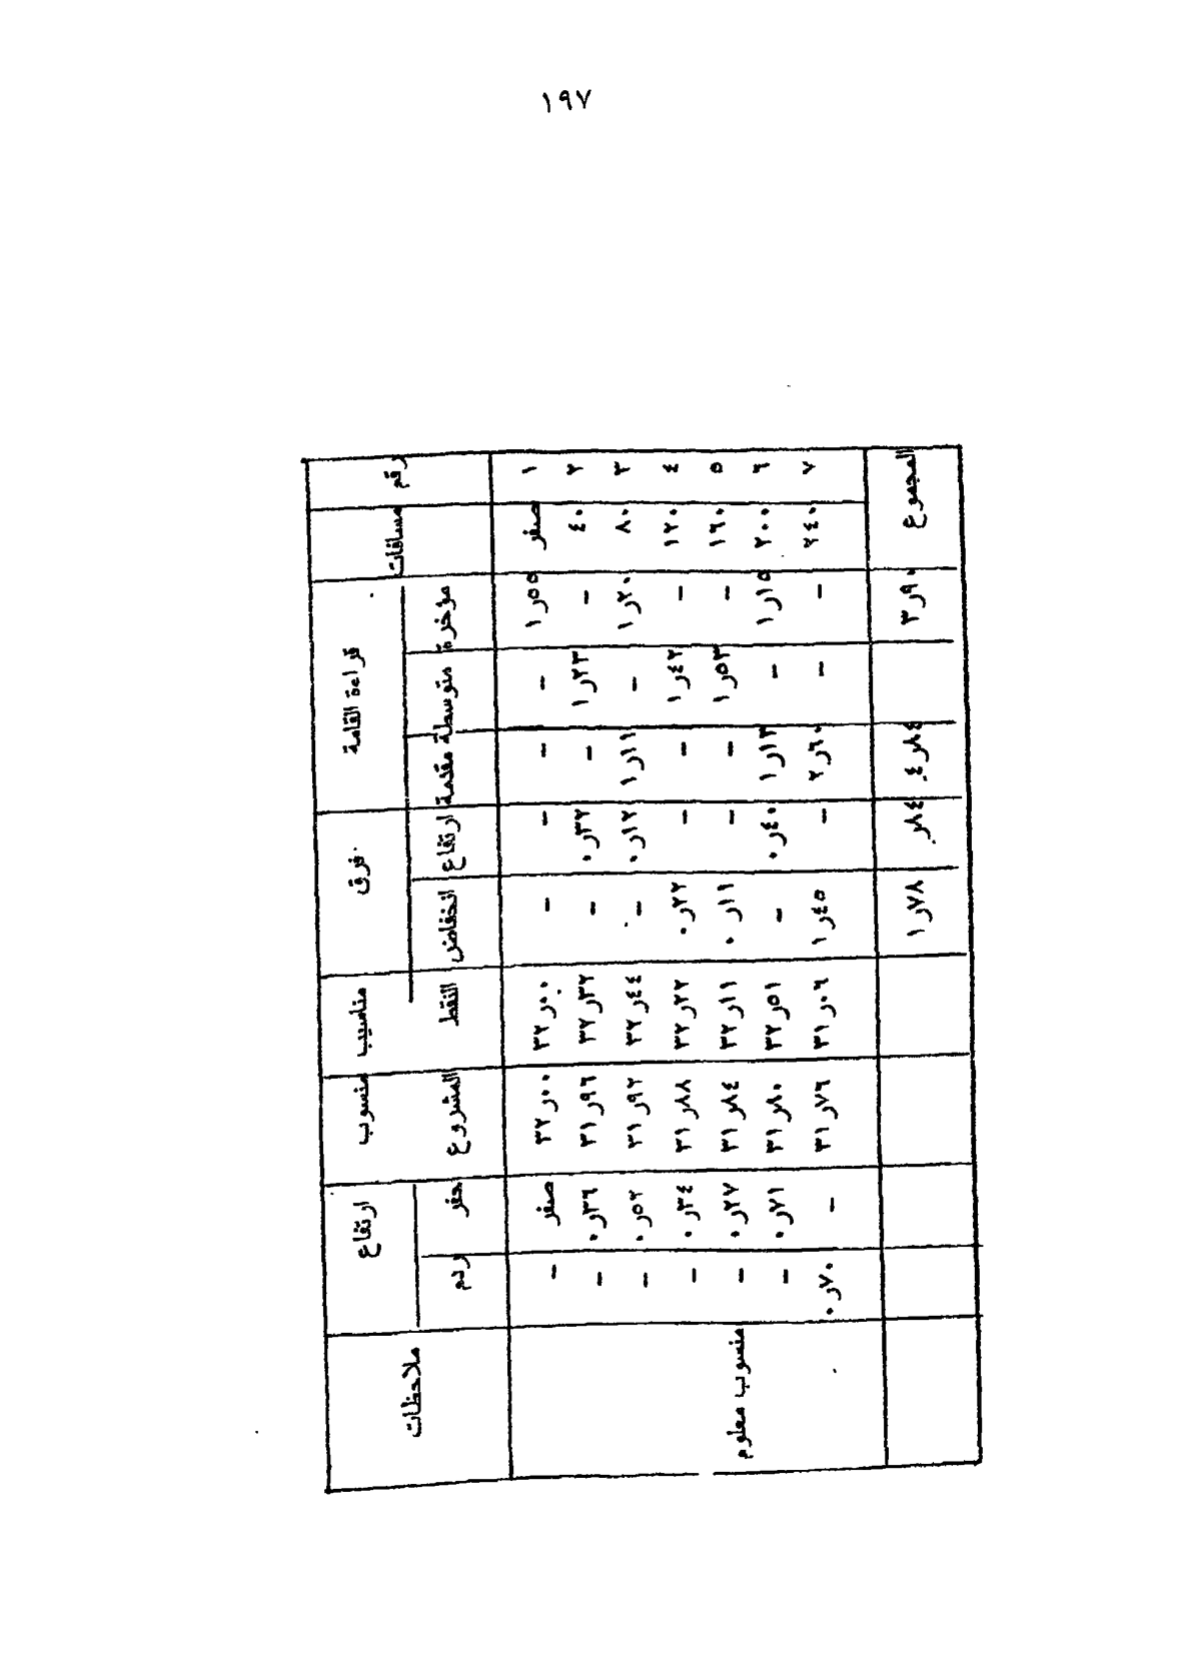 ١٩٧
رقم مسافات قراءة القامة فرق مناسيب منسوب ارتفاع ملاحظات
مؤخرة متوسطة مقدمة ارتفاع انخفاض النقط المشروع حفر ردم
١ صفر ١٫٥٥ - - - - ٣٢٫٠٠ ٣٢٫٠٠ صفر -
٢ ٤٠ - ١٫٢٣ - ٠٫٣٢ - ٣٢٫٣٢ ٣١٫٩٦ ٠٫٣٦ -
٣ ٨٠ ١٫٢٠ - ١٫١١ ٠٫١٢ - ٣٢٫٤٤ ٣١٫٩٢ ٠٫٥٢ -
٤ ١٢٠ - ١٫٤٢ - - ٠٫٢٢ ٣٢٫٢٢ ٣١٫٨٨ ٠٫٣٤ -
٥ ١٦٠ - ١٫٥٣ - - ٠٫١١ ٣٢٫١١ ٣١٫٨٤ ٠٫٢٧ - منسوب معلوم
٦ ٢٠٠ ١٫١٥ - ١٫١٣ ٠٫٤٠ - ٣٢٫٥١ ٣١٫٨٠ ٠٫٧١ -
٧ ٢٤٠ - - ٢٫٦٠ - ١٫٤٥ ٣١٫٠٦ ٣١٫٧٦ - ٠٫٧٠
المجموع ٣٫٩٠ ٤٫٨٤ ٠٫٨٤ ١٫٧٨